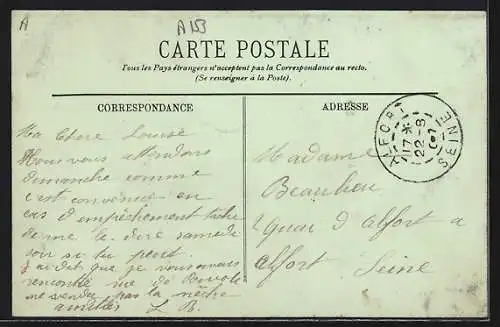 A
A 153
CARTE POSTALE
Tous les Pays étrangers n'acceptent pas la Correspondance au recto.
(Se renseigner à la Poste).
CORRESPONDANCE
ADRESSE
Ma Chere Louise
Nous vous attendons
dimanche comme
c'est convenu en
cas d'empêchement tache
de me le dire samedi
soir si tu peut.
J'ai dit que je vous avais
rencontré rue de Rivoli
ne vendez pas la mèche
amitiés L B.
ALFORT
17
22 - 8
07
SEINE
Madame
Beaulieu
Quai d'Alfort a
Alfort
Seine